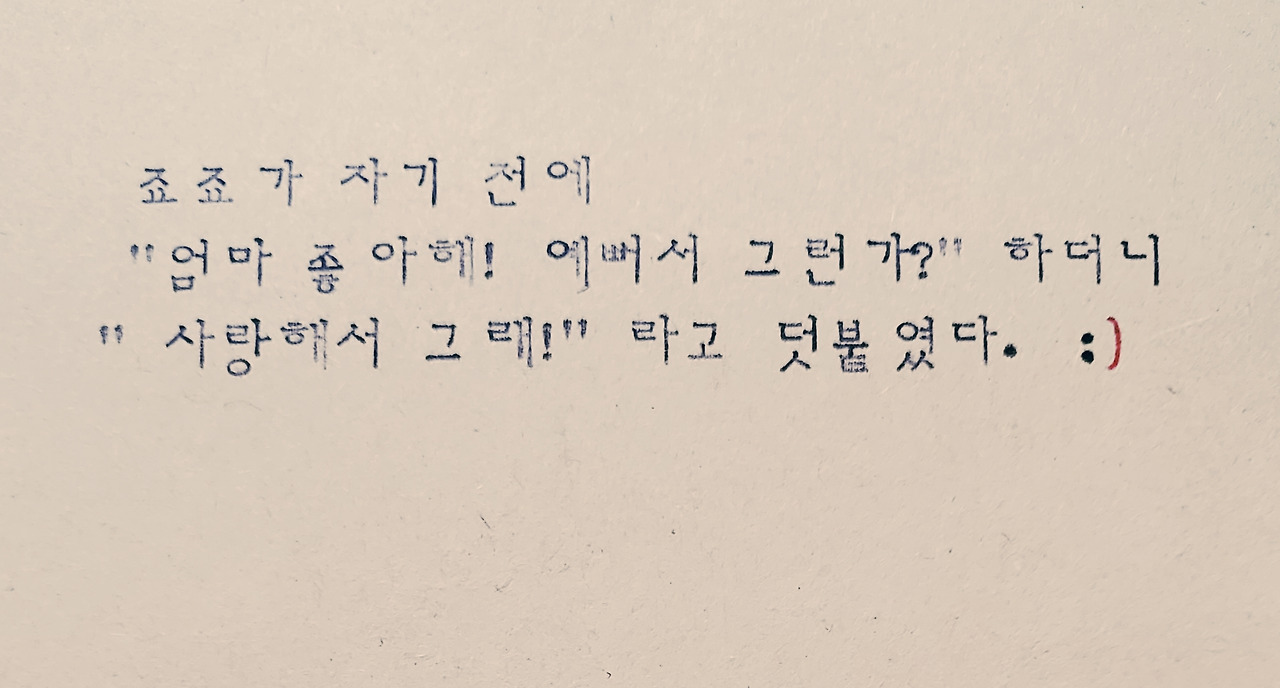 죠죠가 자기 전에
"엄마 좋아해! 예뻐서 그런가?" 하더니
" 사랑해서 그래!" 라고 덧붙였다. :)